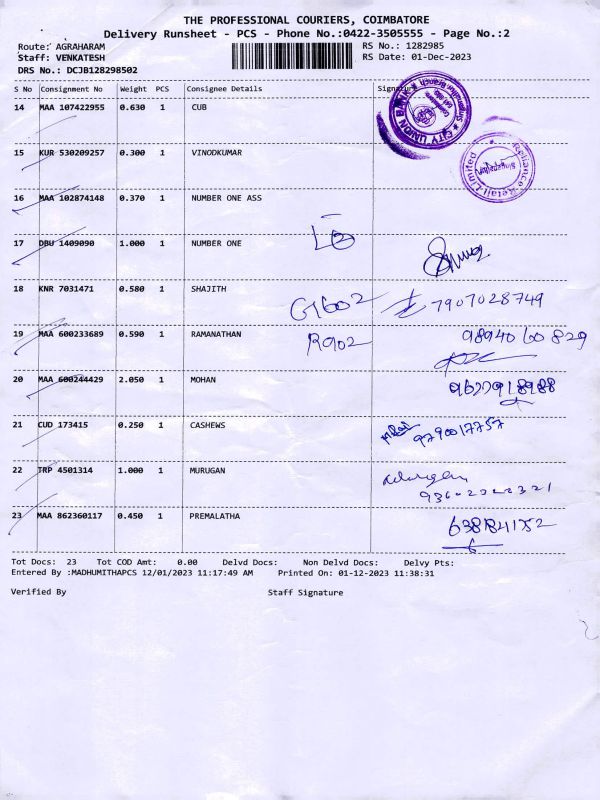 THE PROFESSIONAL COURIERS, COIMBATORE
Delivery Runsheet - PCS - Phone No.:0422-3505555 - Page No.:2
Route: AGRAHARAM RS No.: 1282985
Staff: VENKATESH RS Date: 01-Dec-2023
DRS No.: DCJB128298502
S No Consignment No Weight PCS Consignee Details Signature
14 MAA 107422955 0.630 1 CUB
CITY UNION BANK
15 KUR 530209257 0.300 1 VINODKUMAR
Reliance Retail Limited
16 MAA 102874148 0.370 1 NUMBER ONE ASS
17 DBU 1409090 1.000 1 NUMBER ONE
18 KNR 7031471 0.580 1 SHAJITH G1602 7907028749
19 MAA 600233689 0.590 1 RAMANATHAN R902 98940 60 829
20 MAA 600244429 2.050 1 MOHAN
21 CUD 173415 0.250 1 CASHEWS 9790017757
22 TRP 4501314 1.000 1 MURUGAN Murugan
23 MAA 862360117 0.450 1 PREMALATHA
Tot Docs: 23 Tot COD Amt: 0.00 Delvd Docs: Non Delvd Docs: Delvy Pts:
Entered By :MADHUMITHAPCS 12/01/2023 11:17:49 AM Printed On: 01-12-2023 11:38:31
Verified By Staff Signature